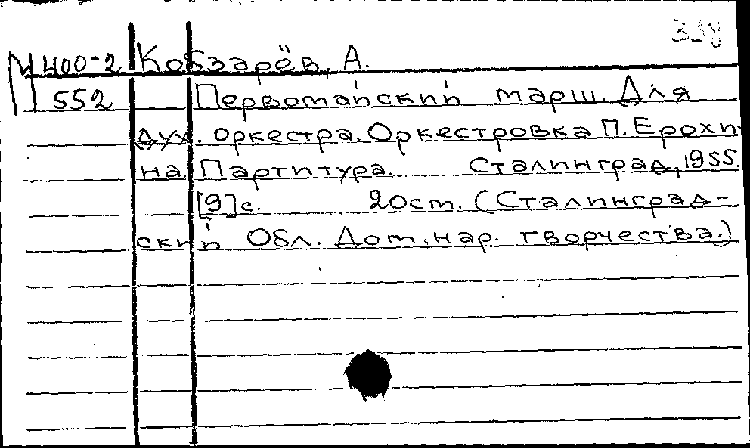 М 400-2 Кобзарёв, А.
552 Первомайский марш. Для
дух. оркестра. Оркестровка П. Ерохи-
на. Партитура. Сталинград, 1955.
[9] с. 20 ст. (Сталинград-
ский Обл. Дом. нар. творчества.)